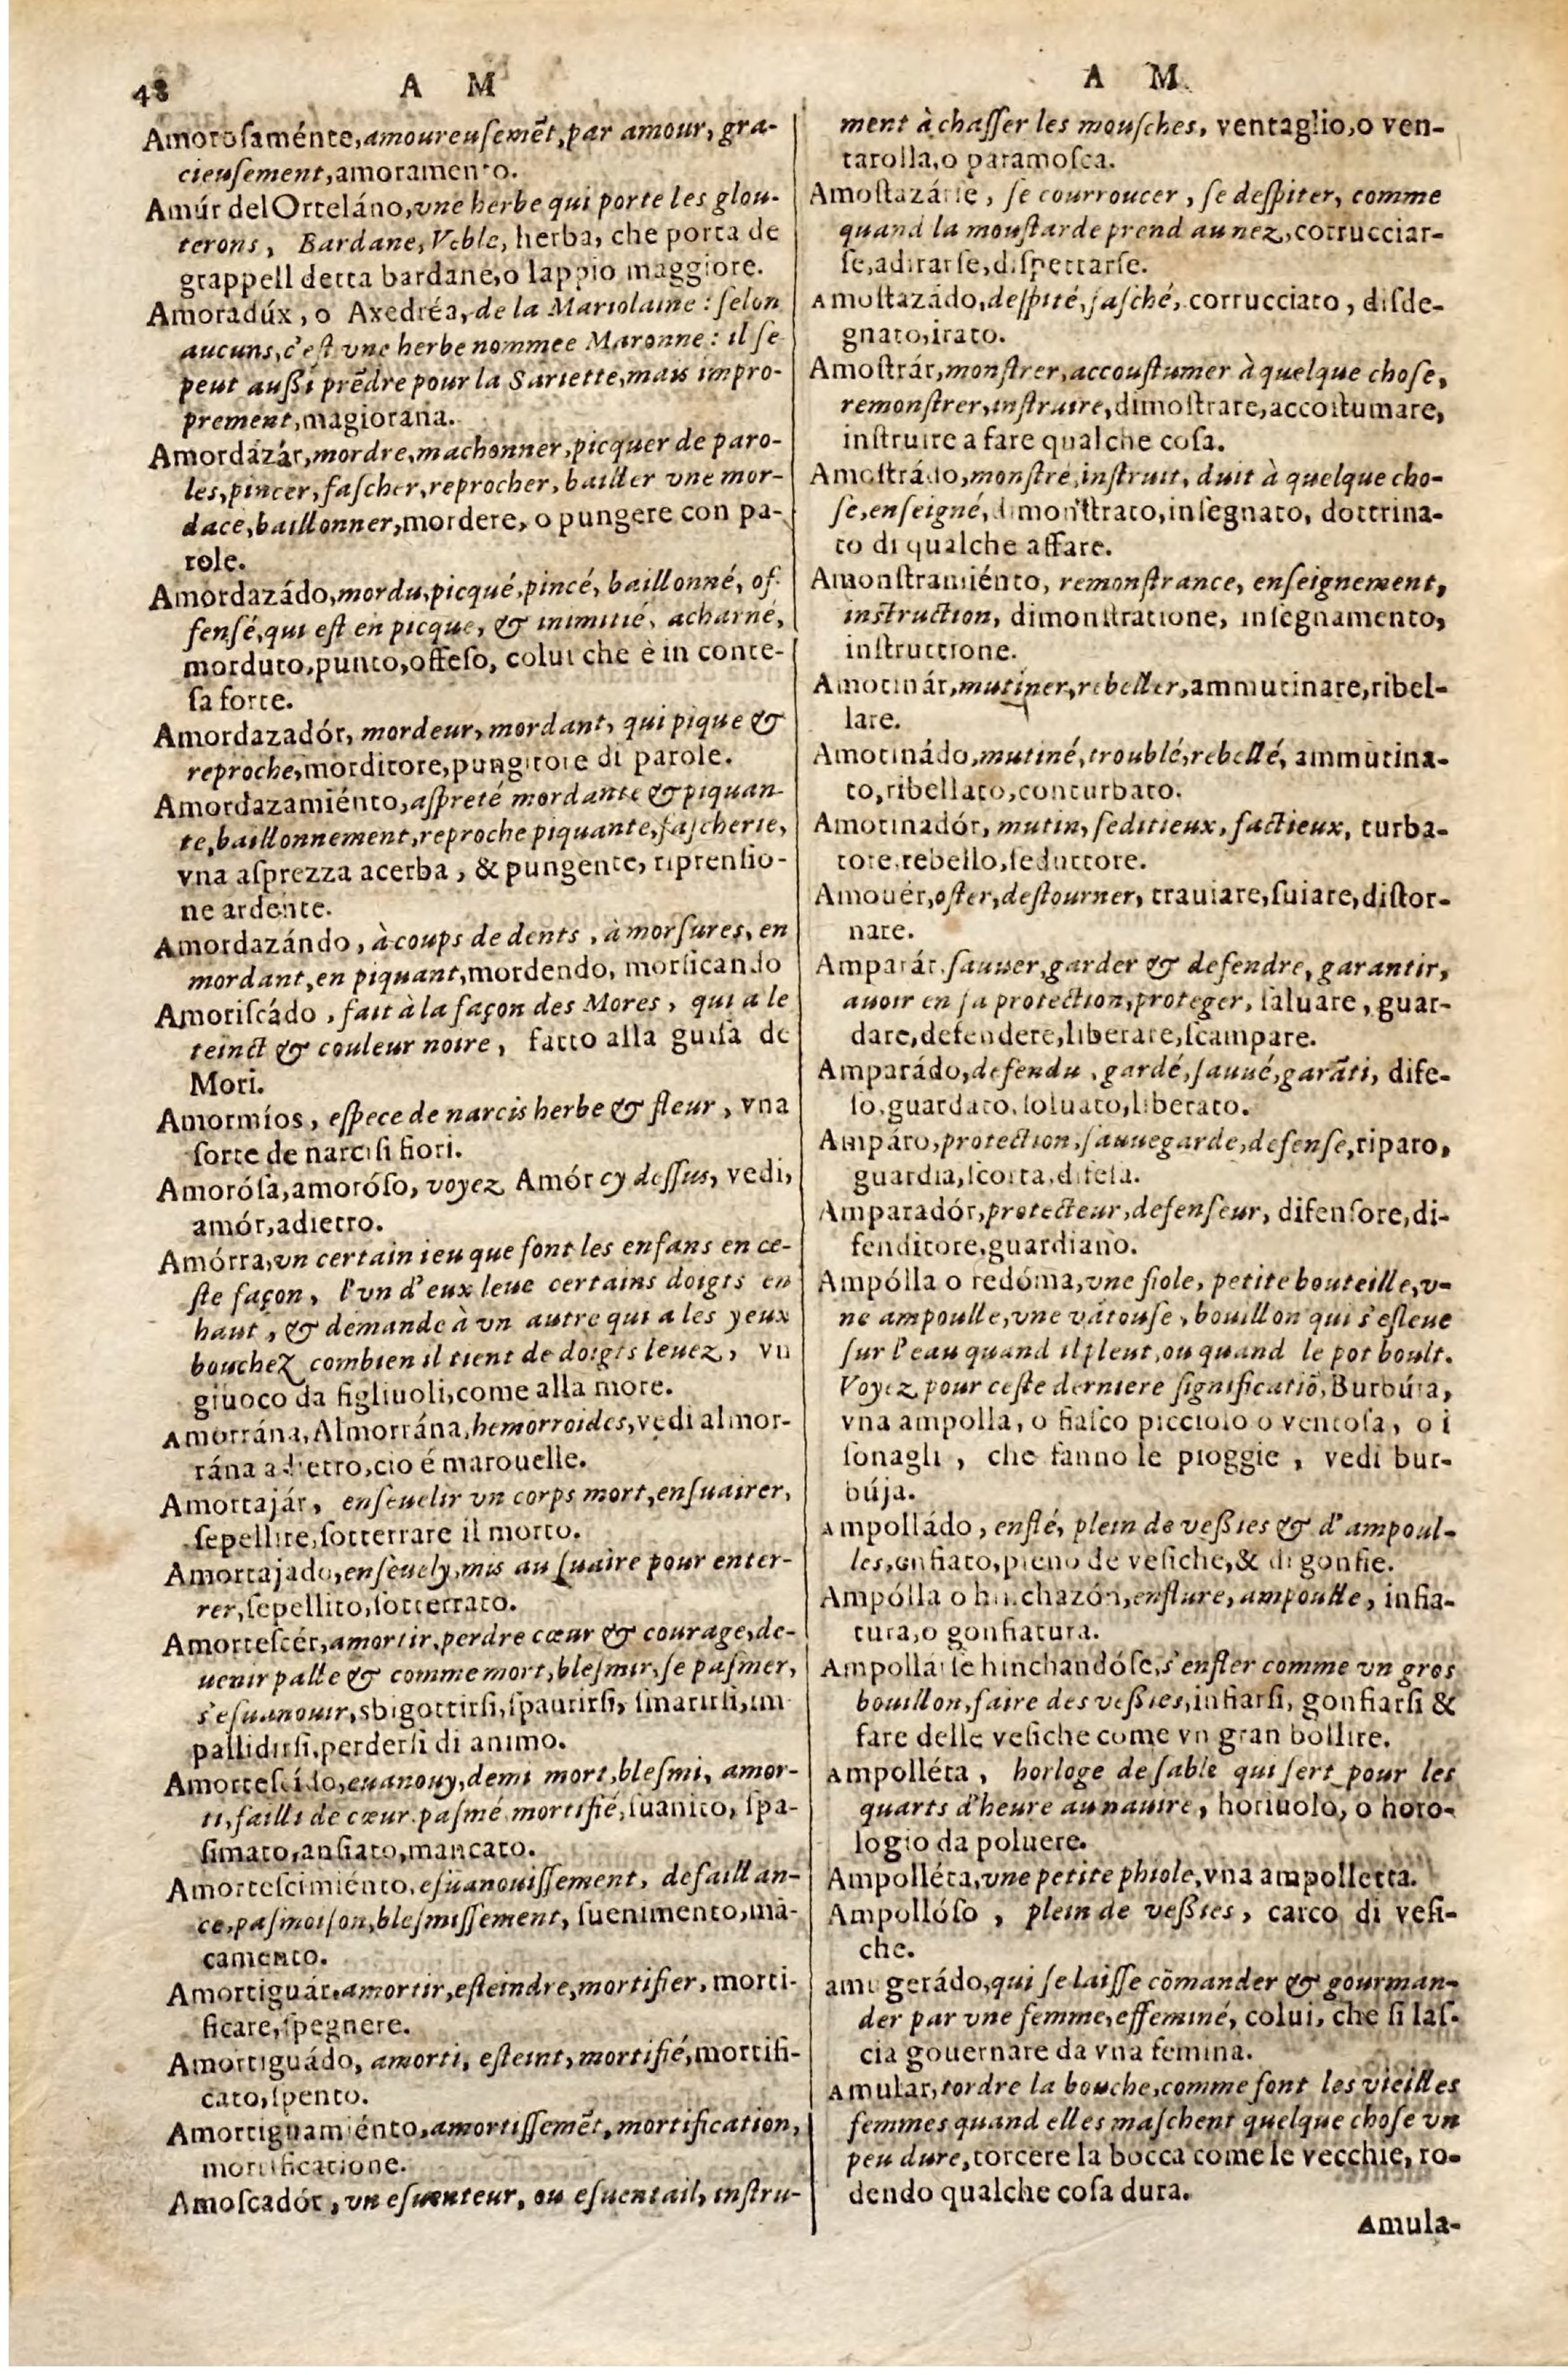 48 A M
Amorosaménte, amoureusemēt, par amour, gra-
cieusement, amoramento.
Amúr del Orteláno, vne herbe qui porte les glou-
terons, Bardane, Veble, herba, che porta de
grappell detta bardane, o lappio maggiore.
Amoradúx, o Axedréa, de la Mariolaine: selon
aucuns, c'est vne herbe nommee Maronne: il se
peut aussi prēdre pour la Sariette, mais impro-
prement, magiorana.
Amordázár, mordre, machonner, picquer de paro-
les, pincer, fascher, reprocher, bailler vne mor-
dace, baillonner, mordere, o pungere con pa-
role.
Amordazádo, mordu, picqué, pincé, baillonné, of-
fensé, qui est en picque, & inimitié, acharné,
morduto, punto, offeso, colui che è in conte-
sa forte.
Amordazadór, mordeur, mordant, qui pique &
reproche, morditore, pungitore di parole.
Amordazamiénto, aspreté mordante & piquan-
te, baillonnement, reproche piquante, fascherie,
vna asprezza acerba, & pungente, riprensio-
ne ardente.
Amordazándo, à coups de dents, à morsures, en
mordant, en piquant, mordendo, morsicando
Amoriscádo, fait à la façon des Mores, qui a le
teinct & couleur noire, fatto alla guisa de
Mori.
Amormíos, espece de narcis herbe & fleur, vna
sorte de narcisi fiori.
Amorósa, amoróso, voyez Amór cy dessus, vedi,
amór, adietro.
Amórra, vn certain ieu que font les enfans en ce-
ste façon, l'vn d'eux leue certains doigts en
haut, & demande à vn autre qui a les yeux
bouchez combien il tient de doigts leuez, vn
giuoco da figliuoli, come alla more.
Amorrána, Almorrána, hemorroides, vedi almor-
rána adietro, cio é marouelle.
Amortajár, enseuelir vn corps mort, ensuairer,
sepellire, sotterrare il morto.
Amortajado, enseuely, mis au suaire pour enter-
rer, sepellito, sotterrato.
Amortescér, amortir, perdre cœur & courage, de-
uenir palle & comme mort, blesmir, se pasmer,
s'esuanouir, sbigottirsi, spaurirsi, smarirsi, im
pallidirsi, perdersi di animo.
Amortescído, euanouy, demi mort, blesmi, amor-
ti, failli de cœur, pasmé, mortifié, suanito, spa-
simato, ansiato, mancato.
Amortescimiénto, esuanouissement, defaillan-
ce, pasmoison, blesmissement, suenimento, mā-
camento.
Amortiguár, amortir, esteindre, mortifier, morti-
ficare, spegnere.
Amortiguádo, amorti, esteint, mortifié, mortifi-
cato, spento.
Amortiguamiénto, amortissemēt, mortification,
mortificatione.
Amoscadór, vn esuenteur, ou esuentail, instru-
A M
ment à chasser les mousches, ventaglio, o ven-
tarolla, o paramosca.
Amostazárse, se courroucer, se despiter, comme
quand la moustarde prend au nez, corrucciar-
se, adirarse, dispettarse.
Amostazádo, despité, fasché, corrucciato, disde-
gnato, irato.
Amostrár, monstrer, accoustumer à quelque chose,
remonstrer, instruire, dimostrare, accostumare,
instruire a fare qualche cosa.
Amostrádo, monstré, instruit, duit à quelque cho-
se, enseigné, dimonstrato, insegnato, dottrina-
to di qualche affare.
Amonstramiénto, remonstrance, enseignement,
instruction, dimonstratione, insegnamento,
instruttione.
Amotinár, mutiner, rebeller, ammutinare, ribel-
lare.
Amotinádo, mutiné, troublé, rebellé, ammutina-
to, ribellato, conturbato.
Amotinadór, mutin, seditieux, factieux, turba-
tore, rebello, seduttore.
Amouér, oster, destourner, trauiare, suiare, distor-
nare.
Amparár, sauuer, garder & defendre, garantir,
auoir en sa protection, proteger, saluare, guar-
dare, defendere, liberare, scampare.
Amparádo, defendu, gardé, sauué, garāti, dife-
so, guardato, soluato, liberato.
Ampáro, protection, sauuegarde, defense, riparo,
guardia, scorta, difesa.
Amparadór, protecteur, defenseur, difensore, di-
fenditore, guardiano.
Ampólla o redóma, vne fiole, petite bouteille, v-
ne ampoulle, vne vātouse, bouillon qui s'esleue
sur l'eau quand il pleut, ou quand le pot boult.
Voyez pour ceste derniere significatiō, Burbúia,
vna ampolla, o fiasco picciolo o ventosa, o i
sonagli, che fanno le pioggie, vedi bur-
búja.
Ampolládo, enflé, plein de vessies & d'ampoul-
les, enfiato, pieno de vesiche, & di gonfie.
Ampólla o hinchazón, enflure, ampoulle, infia-
tura, o gonfiatura.
Ampollarse hinchandóse, s'enfler comme vn gros
bouillon, faire des vessies, infiarsi, gonfiarsi &
fare delle vesiche come vn gran bollire.
Ampolléta, horloge de sable qui sert pour les
quarts d'heure au nauire, horiuolo, o horo-
logio da poluere.
Ampolléta, vne petite phiole, vna ampolletta.
Ampollóso, plein de vessies, carco di vesi-
che.
amugerádo, qui se laisse cōmander & gourman-
der par vne femme, effeminé, colui, che si las-
cia gouernare da vna femina.
Amular, tordre la bouche, comme font les vieilles
femmes quand elles maschent quelque chose vn
peu dure, torcere la bocca come le vecchie, ro-
dendo qualche cosa dura.
Amula-